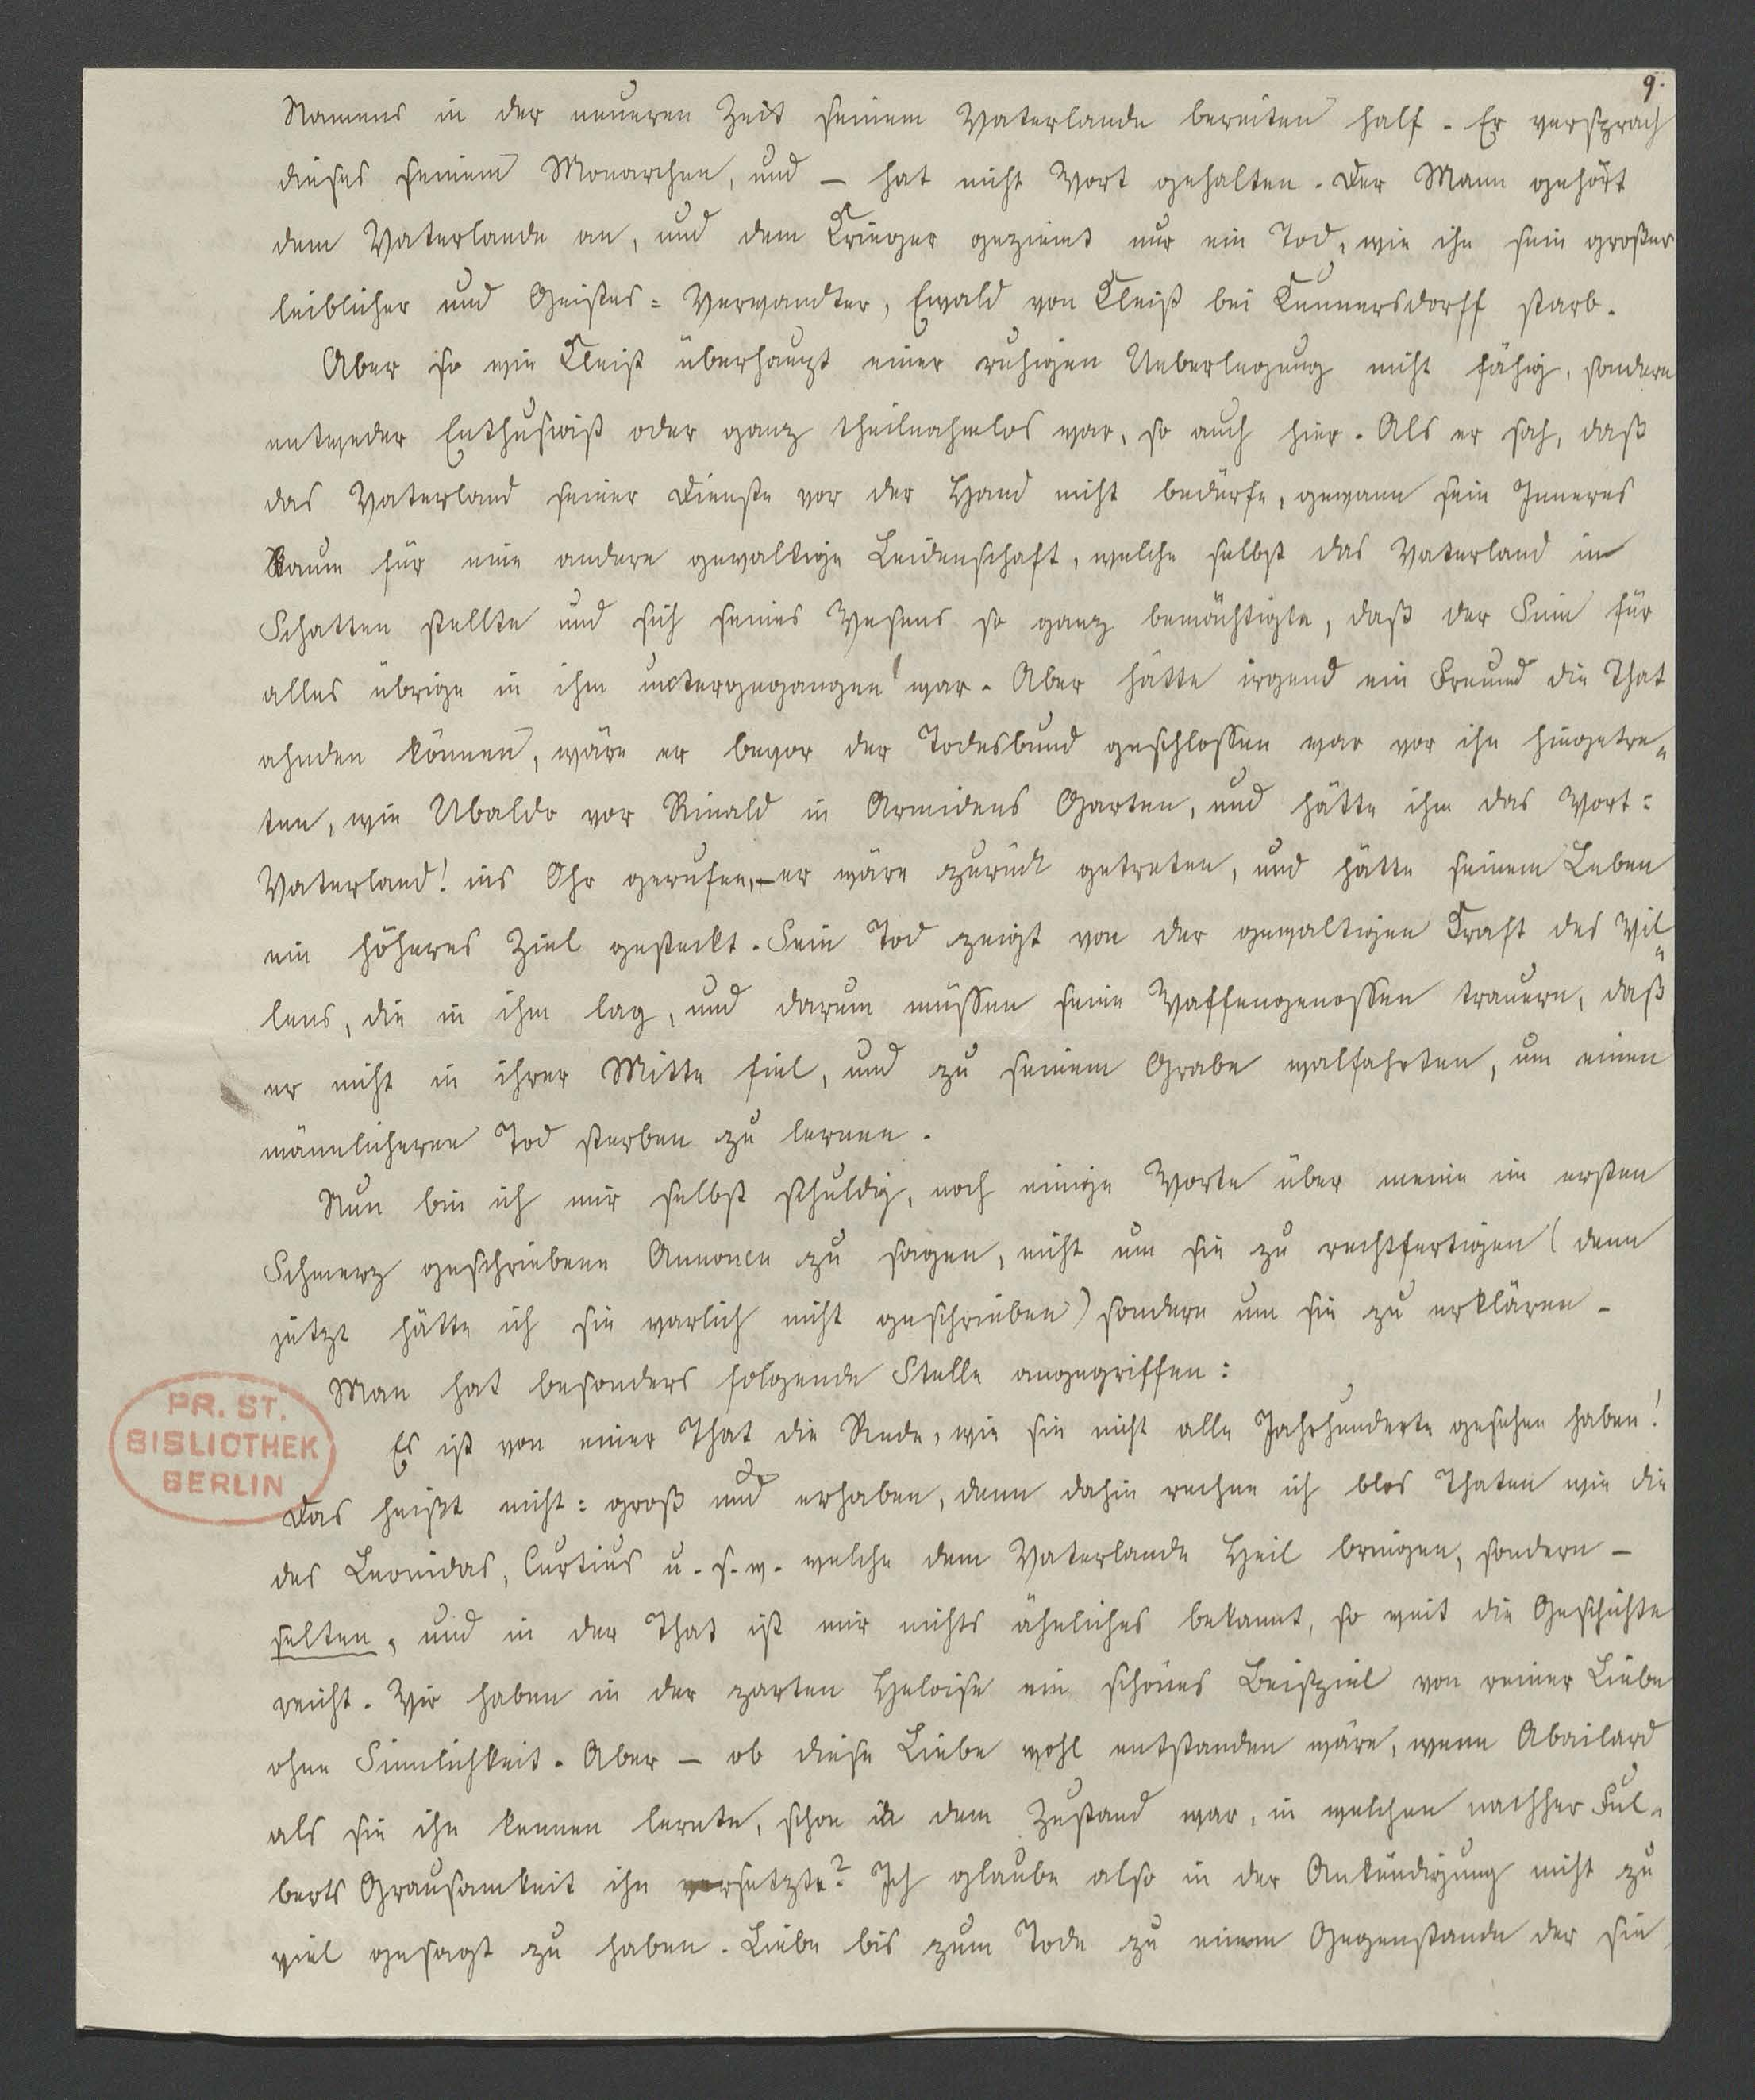 9.
Namens in der neueren Zeit seinem Vaterlande bereiten half. Er versprach
dieses seinem Monarchen, und – hat nicht Wort gehalten. Der Mann gehört
dem Vaterlande an, und dem Krieger geziemt nur ein Tod, wie ihn sein großer
leiblicher und Geistes= Verwandter, Ewald von Kleist bei Kunnersdorff starb.
Aber so wie Kleist überhaupt einer ruhigen Ueberlegung nicht fähig, sondern
entweder Enthusiast oder ganz theilnahmlos war, so auch hier. Als er sah, daß
das Vaterland seiner Dienste vor der Hand nicht bedürfe, gewann sein Inneres
Raum für eine andere gewaltige Leidenschaft, welche selbst das Vaterland in
Schatten stellte und sich seines Wesens so ganz bemächtigte, daß der Sinn für
alles übrige in ihm untergegangen war. Aber hätte irgend ein Freund die That
ahnden können, wäre er bevor der Todesbund geschlossen war vor ihn hingetre„
ten, wie Ubaldo vor Rinald in Armidens Garten, und hätte ihm das Wort:
Vaterland! ins Ohr gerufen, – er wäre zurück getreten, und hätte seinem Leben
ein höheres Ziel gesteckt. Sein Tod zeigt von der gewaltigen Kraft des Wil„
lens, die in ihm lag, und darum müssen seine Waffengenossen trauern, daß
er nicht in ihrer Mitte fiel, und zu seinem Grabe walfahrten, um einen
männlicheren Tod sterben zu lernen.
Nun bin ich mir selbst schuldig, noch einige Worte über meine im ersten
Schmerz geschriebene Annonce zu sagen, nicht um sie zu rechtfertigen (denn
jetzt hätte ich sie warlich nicht geschrieben) sondern um sie zu erklären –
Man hat besonders folgende Stelle angegriffen:
Es ist von einer That die Rede, wie sie nicht alle Jahrhunderte gesehen haben!
Das heißt nicht: groß und erhaben, denn dahin rechne ich blos Thaten wie die
des Leonidas, Curtius u. s. w. welche dem Vaterlande Heil bringen, sondern –
selten, und in der That ist mir nichts ähnliches bekannt, so weit die Geschichte
reicht. Wir haben in der zarten Heloise ein schönes Beispiel von reiner Liebe
ohne Sinnlichkeit. Aber – ob diese Liebe wohl entstanden wäre, wenn Abailard
als sie ihn kennen lernte, schon in dem Zustand war, in welchen nachher Ful„
berts Grausamkeit ihn versetzte? Ich glaube also in der Ankündigung nicht zu
viel gesagt zu haben. Liebe bis zum Tode zu einem Gegenstande der sie
PR. ST.
BISLIOTHEK
BERLIN